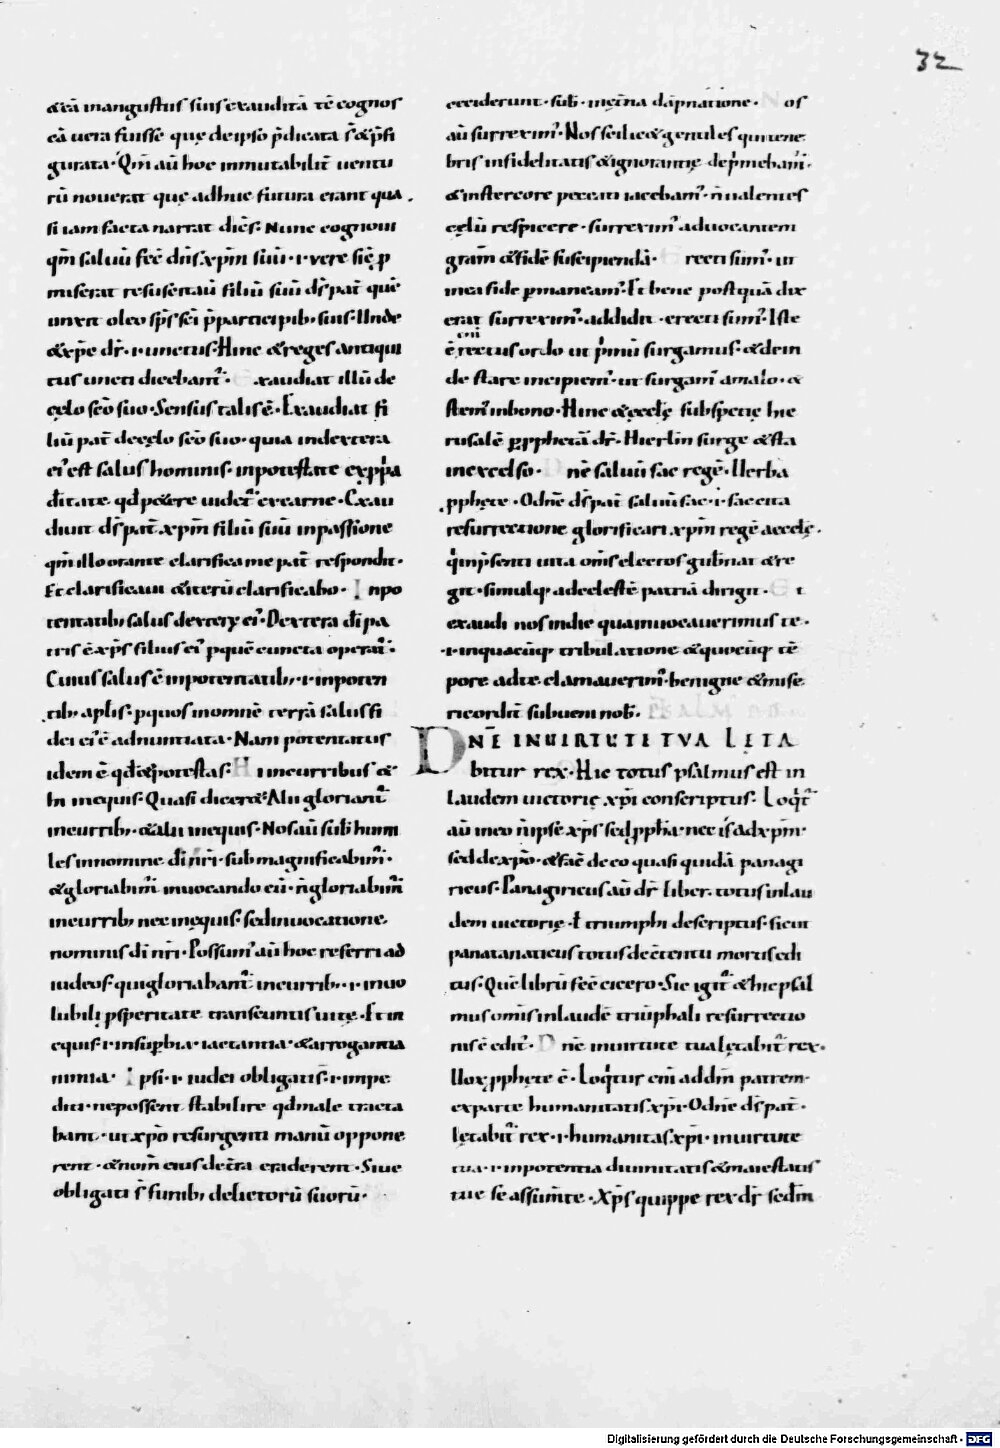 32
&eā inangustus suis exauditā tē cognos
cā uera fuisse quę de ipso p̄dicata s̄ & p̄fi
gurata. Qm̄ aū hoc inmutabilit̄ uentu
rū nouerat quę adhuc futura erant qua
si iam facta narrat diēs. Nunc cognoui
qm̄ saluū fēc dn̄s xp̄m suū .i. vere sic ꝑ
miserat resuscitaū filiū suū d̄s pat̄ quē
unxit oleo sp̄s sc̄i p̄ participib; suis. Unde
& xp̄c dr̄ .i. unctus. Hinc & reges antiqui
tus uncti dicebant᷑. Exaudiat illū de
cęlo sc̄o suo. Sensus talis ē. Exaudiat fi
liū pat̄ de cęlo sc̄o suo. quia in dextera
ei᷒ est salus hominis. in potestate ex ppa
ditate qđ p&ere uidet᷑ ex carne. Exau
diuit d̄s pat̄ xp̄m filiū suū in passione
qm̄ illo orante clarifica me pat̄ respondit.
Et clarificaui & iterū clarificabo. In po
tentatib; salus dexterę ei᷒. Dextera dī pa
tris ē xp̄s filius ei᷒ p quē cuncta operat᷑.
Cuius salus ē in potentatib; .i. in poten
tib; apl̄is. p quos in omnē terrā salus fi
dei ei᷒ ē adnuntiata. Nam potentatus
idem ē qđ & potestas. Hi in curribus &
hi in equis. Quasi dicer&. Alii gloriant᷑
in currib; & alii in equis. Nos aū sub hum
les in nomine dī nr̄i. sub magnificabim᷒.
& gloriabim᷒ inuocando eū. n̄ gloriabim᷒
in currib; nec in equis. sed inuocatione
nominis dī nr̄i. Possum᷒ aū hoc referri ad
iudeos. qui gloriabant᷑ in currib; .i. in uo
lubili psperitate transeuntis uitę. Et in
equis .i. in supbia. iactantia. & arrogantia
nimia. Ipsi .i. iudei obligati s̄ .i. impe
diti. ne possent stabilire qđ male tracta
bant. ut xp̄o resurgenti manū oppone
rent. & nom̄ eius de trā eraderent. Siue
obligati s̄ funib; delictorū suorū.
ceciderunt. sub ętn̄a dāpnatione. Nos
aū surrexim᷒. Nos scilic& gentiles qui tene
bris infidelitatis & ignorantię dep̄mebam᷒.
& in stercore peccati iacebam᷒. n̄ ualentes
cęlū respicere. surrexim᷒ ad uocantem
gram̄ & fidē suscipiendā. Erecti sum᷒. ut
in ea fide pmaneam᷒. Et bene postquā dix
erat surrexim᷒. addidit. erecti sum᷒. Iste
ē rectus ordo ut p̄mū surgamus. & dein
de stare incipiem᷒. ut surgam᷒ a malo. &
stem᷒ in bono. Hinc & ęccłę sub specię hie
rusalē p pphetā dr̄. Hierlm̄ surge & sta
in excelso. Dnē saluū fac regē. Uerba
pphętę. O dnē d̄s pat̄ saluū fac .i. fac cita
resurrectione glorificari xp̄m regē aecclę.
qui in p̄senti uita om̄s electos gubnat & re
git. simulq; ad cęlestē patriā dirigit. Et
exaudi nos in die qua inuocauerimus te.
.i. in quacūq; tribulatione & quocūq; tē
pore ad te clamauerim᷒. benigne & mise
ricordit̄ subueni nob̄.
DNĒ IN UIRTUTE TUA LETA
bitur rex. Hic totus psalmus est in
laudem uictorię xp̄i conscriptus. Loq̄t᷑
aū in eo n̄ ipse xp̄s sed ppħa. nec is ad xp̄m.
sed de xp̄o. & facē de eo quasi quidā panagi
ricus. Panagiricus aū dr̄ liber totus in lau
dem uictorię ł triumphi descriptus. sicut
panatanaticus totus de ctentu mortis edi
tus. Quē librū fēc cicero. Sic igit᷑ & hic psal
mus om̄is in laudē triūphali resurrectio
nis ē edit᷒. Dnē in uirtute tua lętabit᷑ rex.
Uox pphętę ē. Loquitur em̄ ad dm̄ patrem
ex parte humanitatis xp̄i. O dnē d̄s pat̄.
lętabit᷑ rex .i. humanitas xp̄i. in uirtute
tua .i. in potentia diuinitatis & maiestatis
tue se assumte. Xp̄s quippe rex dr̄ sedm
Digitalisierung gefördert durch die Deutsche Forschungsgemeinschaft - DFG